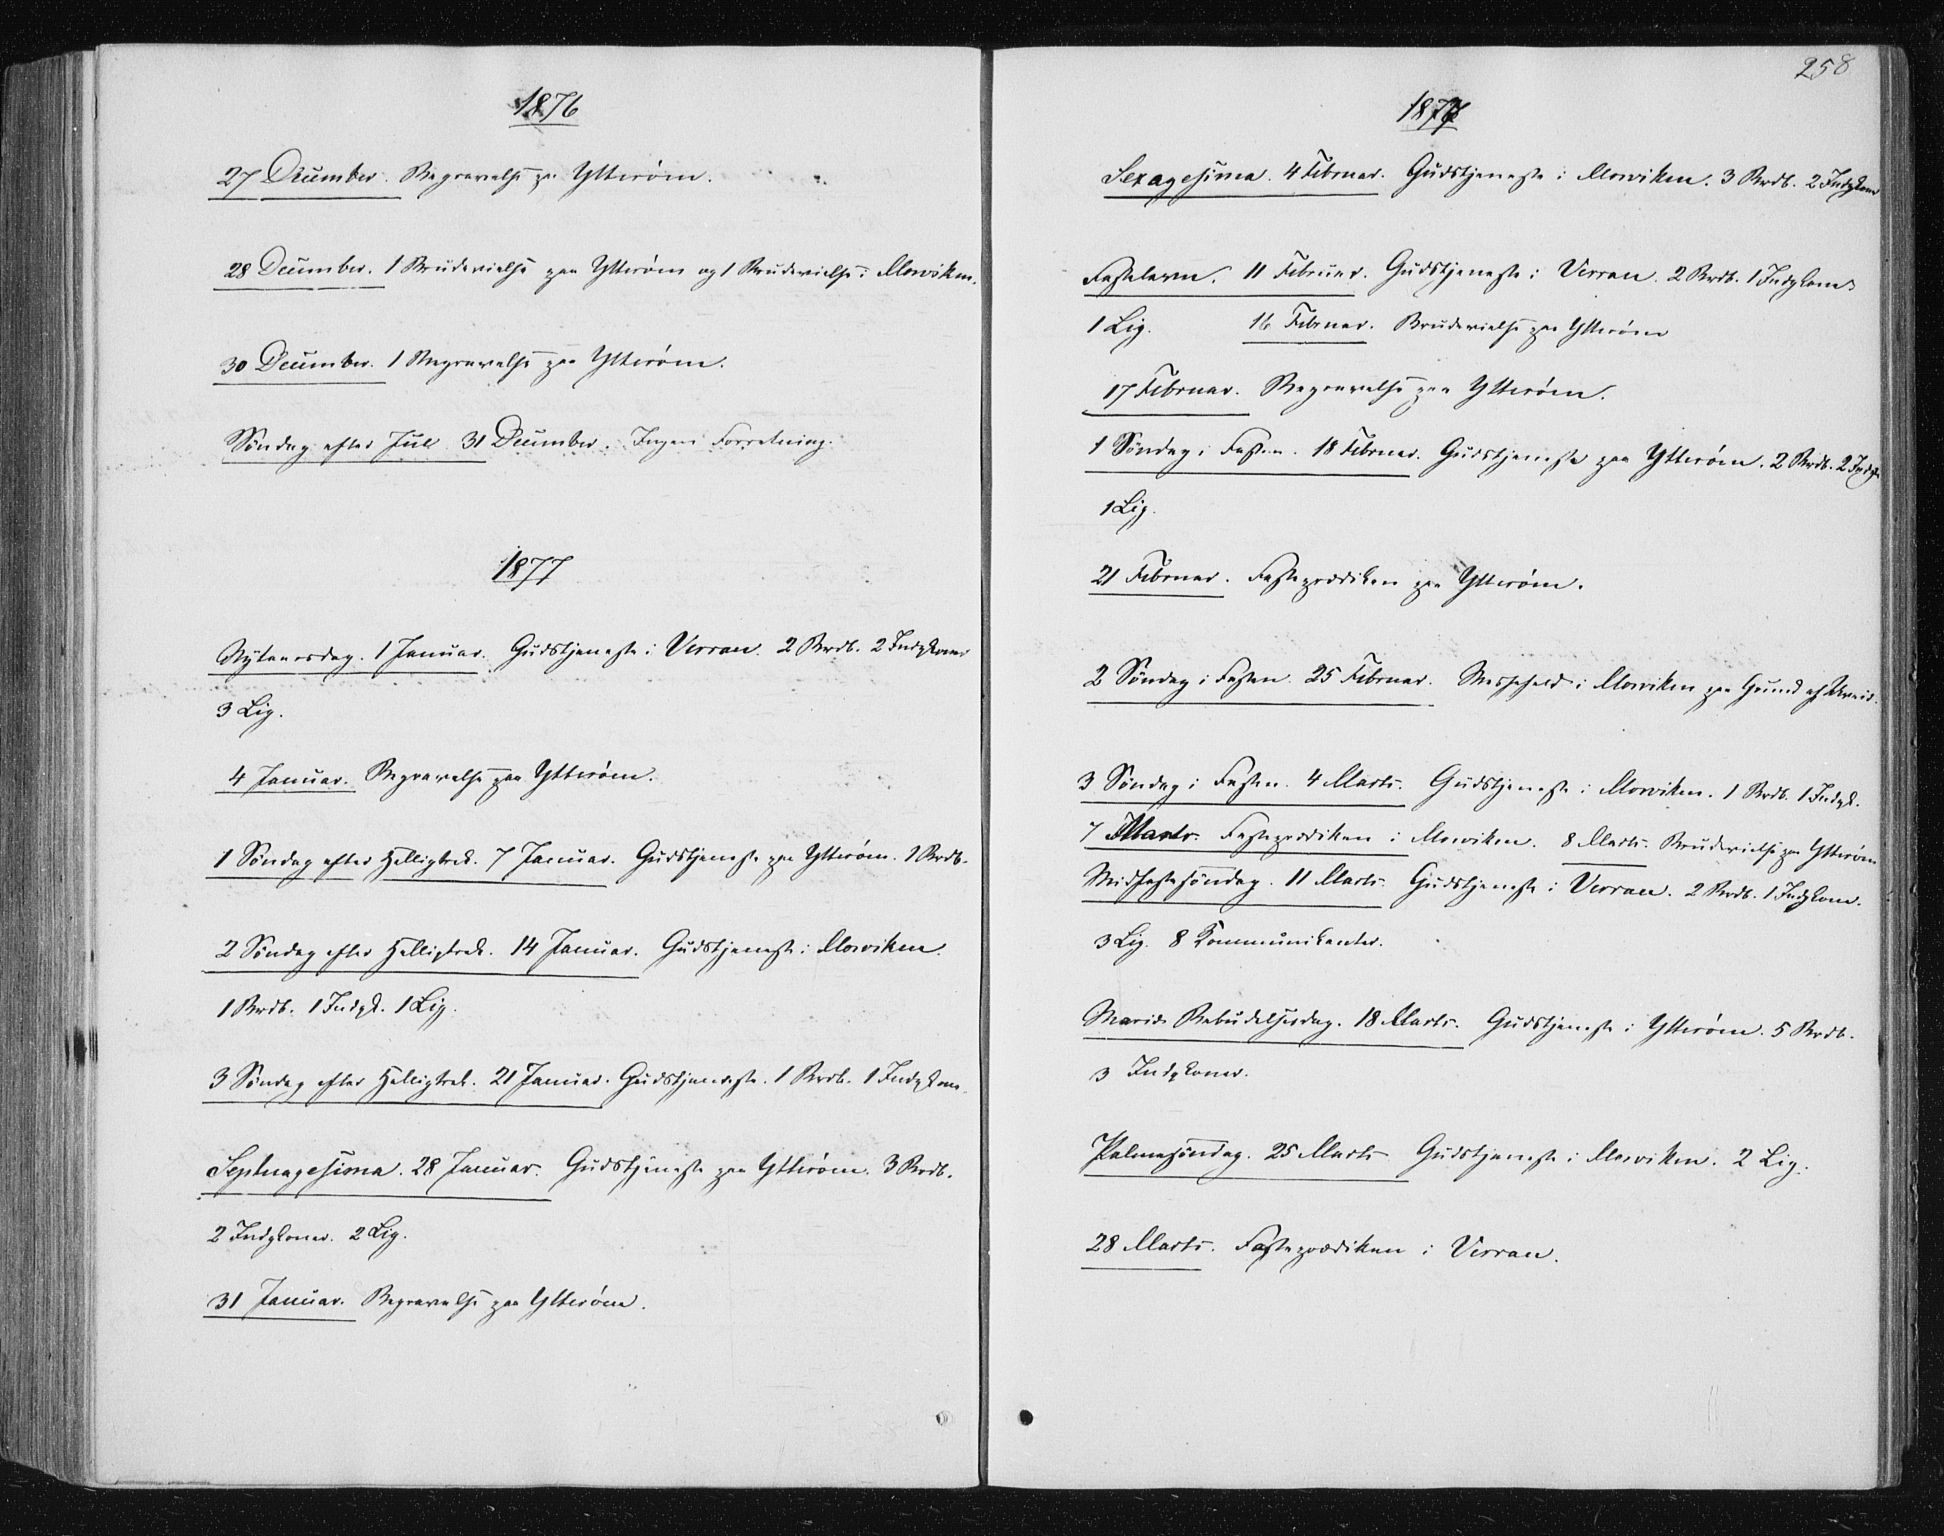 1876
27 December. Begravelse paa Ytterøen.
28 December. 1 Brudevielse paa Ytterøen og 1 Brudevielse i Mosviken.
30 December. 1 Begravelse paa Ytterøen.
Søndag efter Jul 31 December. Ingen Forretning.
1877
Nytaarsdag. 1 Januar. Gudstjeneste i Verran. 2 Brdb. 2 Indgkoner
3 Lig.
4 Januar. Begravelse paa Ytterøen.
1 Søndag efter Helligtrek. 7 Januar. Gudstjeneste paa Ytterøen. 1 Brdb.
2 Søndag efter Helligtrek. 14 Januar. Gudstjeneste i Mosviken.
1 Brdb. 1 Indgk. 1 Lig.
3 Søndag efter Helligtrek. 21 Januar. Gudstjeneste. 1 Brdb. 1 Indgkone.
Septuagesima. 28 Januar. Gudstjeneste paa Ytterøen. 3 Brdb.
2 Indgkoner. 2 Lig.
31 Januar. Begravelse paa Ytterøen.
258
1877
Sexagesima. 4 Februar. Gudstjeneste i Mosviken. 3 Brdb. 2 Indgkoner
Fastelavn. 11 Februar. Gudstjeneste i Verran. 2 Brdb. 1 Indgkone
1 Lig. 16 Februar. Brudevielse paa Ytterøen
17 Februar. Begravelse paa Ytterøen.
1 Søndag i Fasten. 18 Februar. Gudstjeneste paa Ytterøen. 2 Brdb. 2 Indgk
1 Lig.
21 Februar. Fasteprædiken paa Ytterøen.
2 Søndag i Fasten. 25 Februar. Messefald i Mosviken paa Grund af Uveir.
3 Søndag i Fasten. 4 Marts. Gudstjeneste i Mosviken. 1 Brdb. 1 Indgk.
7 Marts. Fasteprædiken i Mosviken. 8 Marts. Brudevielse paa Ytterøen
Midfastesøndag. 11 Marts. Gudstjeneste i Verran. 2 Brdb. 1 Indgkone.
3 Lig. 8 Kommunikanter.
Mariæ Bebudelsesdag. 18 Marts. Gudstjeneste i Ytterøen. 5 Brdb.
3 Indgkoner.
Palmesøndag. 25 Marts Gudstjeneste i Mosviken. 2 Lig.
28 Marts. Fasteprædiken i Verran.